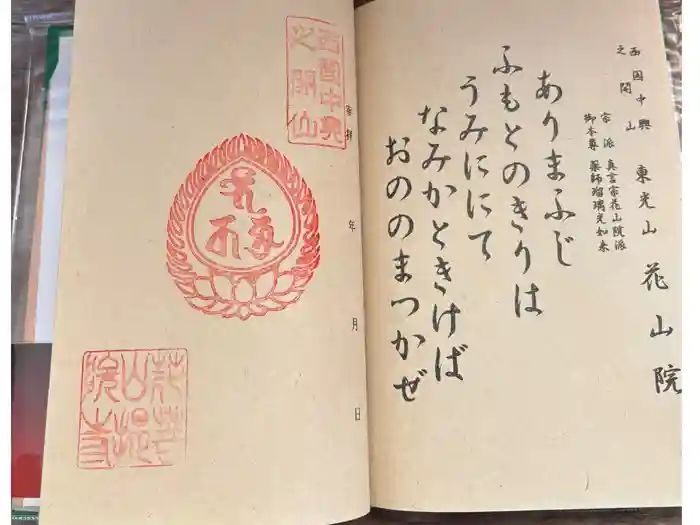 西国中興
之開山
東光山 花山院
宗派 真言宗花山院派
御本尊 薬師瑠璃光如来
ありまふじ
ふもとのきりは
うみににて
なみかときけば
おののまつかぜ
西国中興
之開山
奉拝 年 月 日